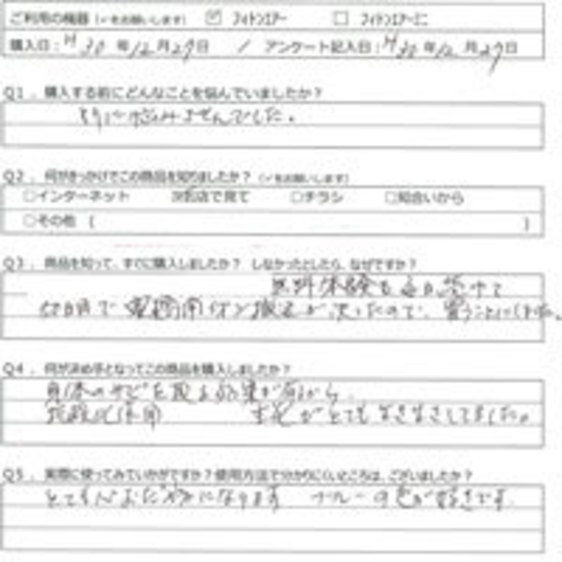 ご利用の機器 (✓をお願いします) ☑ フィトンエアー □ フィトンエアーミニ
購入日：H30年12月27日 / アンケート記入日：H30年12月27日
Q1．購入する前にどんなことを悩んでいましたか？
特に悩みませんでした。
Q2．何がきっかけでこの商品を知りましたか？(✓をお願いします)
□インターネット ☑お店で見て □チラシ □知合いから
□その他 ( )
Q3．商品を知って、すぐに購入しましたか？ しなかったとしたら、なぜですか？
無料体験を毎日受けて
で が 決ったので、買うことにしました。
Q4．何が決め手となってこの商品を購入しましたか？
身体のサビを取る効果が有るから、
抗酸化作用 生花がとてもいきいきしてました。
Q5．実際に使ってみていかがですか？使用方法で分かりにくいところは、ございましたか？
とても心おだやかになります ブルーの色が好きです。